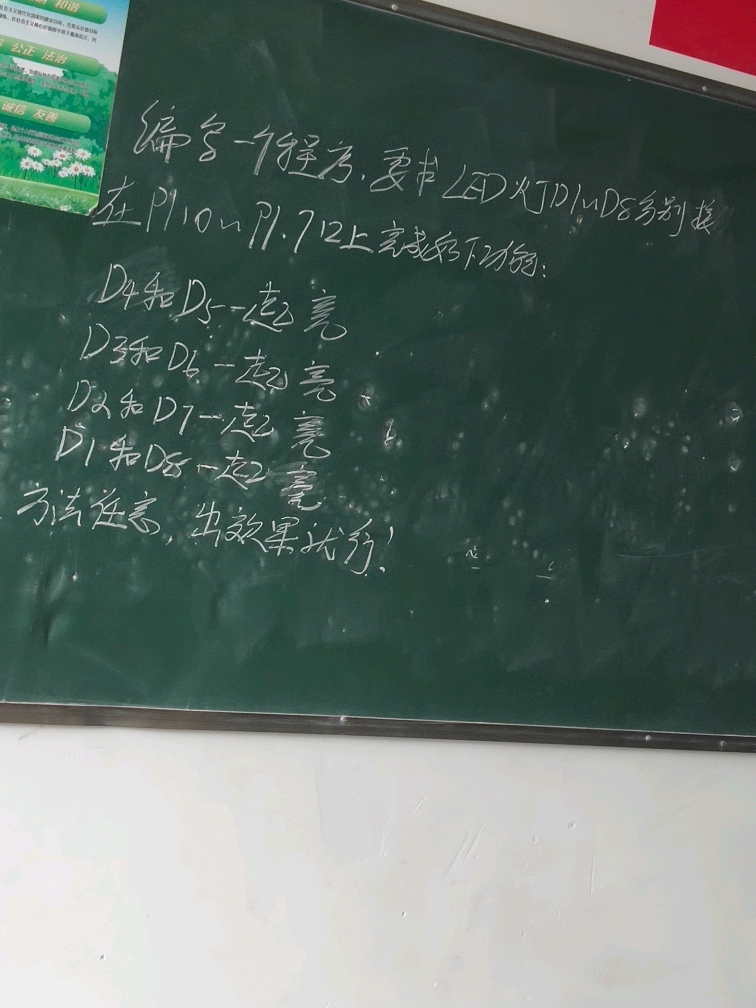 和谐
公正 法治
诚信 友善
编写一个程序,要求LED灯D1~D8分别接
在P1.0~P1.7口上完成如下功能:
D4和D5一起亮
D3和D6一起亮
D2和D7一起亮
D1和D8一起亮
方法任意,出效果就行!